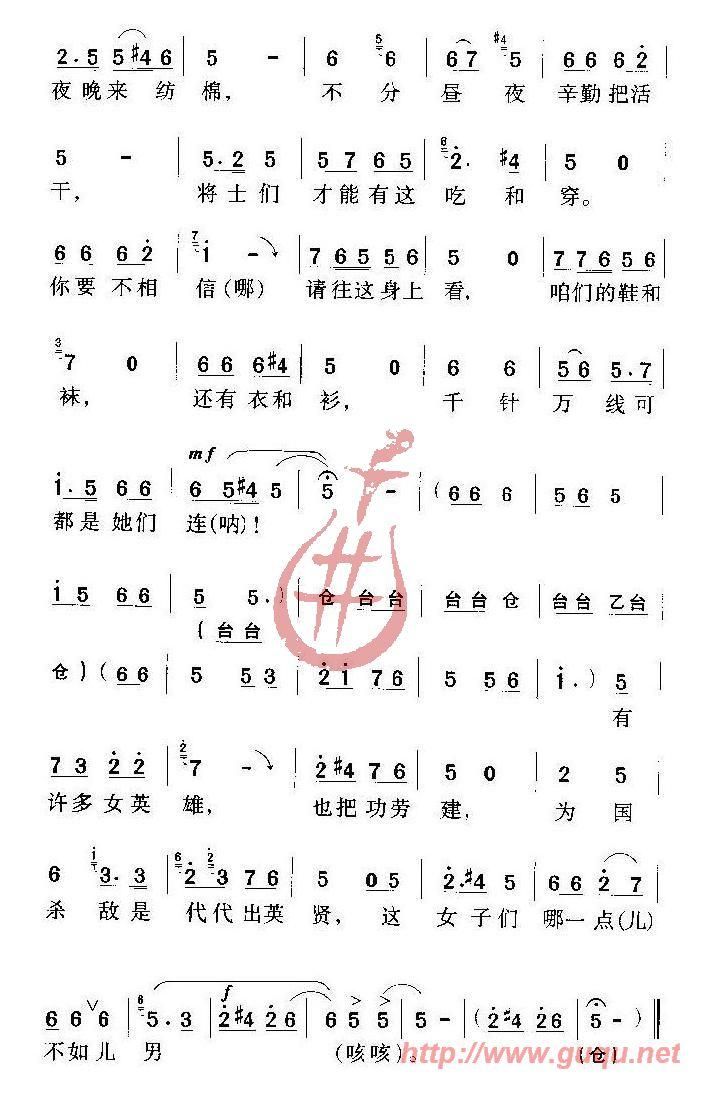 2·5 5#46 | 5 - | 6 5 6 | 67 #4 5 | 666 2 |
夜晚来 纺 棉, 不 分 昼 夜 辛勤把活
5 - | 5·2 5 | 5 7 6 5 | 6 2· #4 | 5 0 |
干, 将士们 才能有这 吃 和 穿。
6 6 6 2 | 7 i - | 7 6 5 5 5 6 | 5 0 | 7 7 6 5 6
你要 不相 信(哪) 请往这身上 看, 咱们的鞋和
3 7 0 | 6 6 6 #4 | 5 0 | 6 6 | 5 6 5·7
袜, 还有 衣和 衫, 千 针 万 线可
mf
i·5 6 6 | 6 5#4 5 | 5 - | (6 6 6 | 5 6 5 |
都是她们 连(呐)!
i 5 6 6 | 5 5·) | 仓 台台 | 台台 仓 | 台台 乙台 |
(台台
仓)(6 6 | 5 5 3 | 2 i 7 6 | 5 5 6 | i·) 5 |
有
7 3 2 2 | 2 7 - | 2#4 7 6 | 5 0 | 2 5 |
许多 女英 雄, 也把 功劳 建, 为 国
6 i 3·3 | 6 2 2 3 7 6 | 5 0 5 | 2·#4 5 | 6 6 2 7 |
杀 敌是 代代出英 贤, 这 女子们 哪一点(儿)
f
6 6 ∨ 6 | 6 5·3 | 2#4 2 6 | 6 5 5 | 5 - | (2#4 2 6 | 5 -) ‖
不如儿 男 (咳咳)。 (仓)
http://www.guqu.net